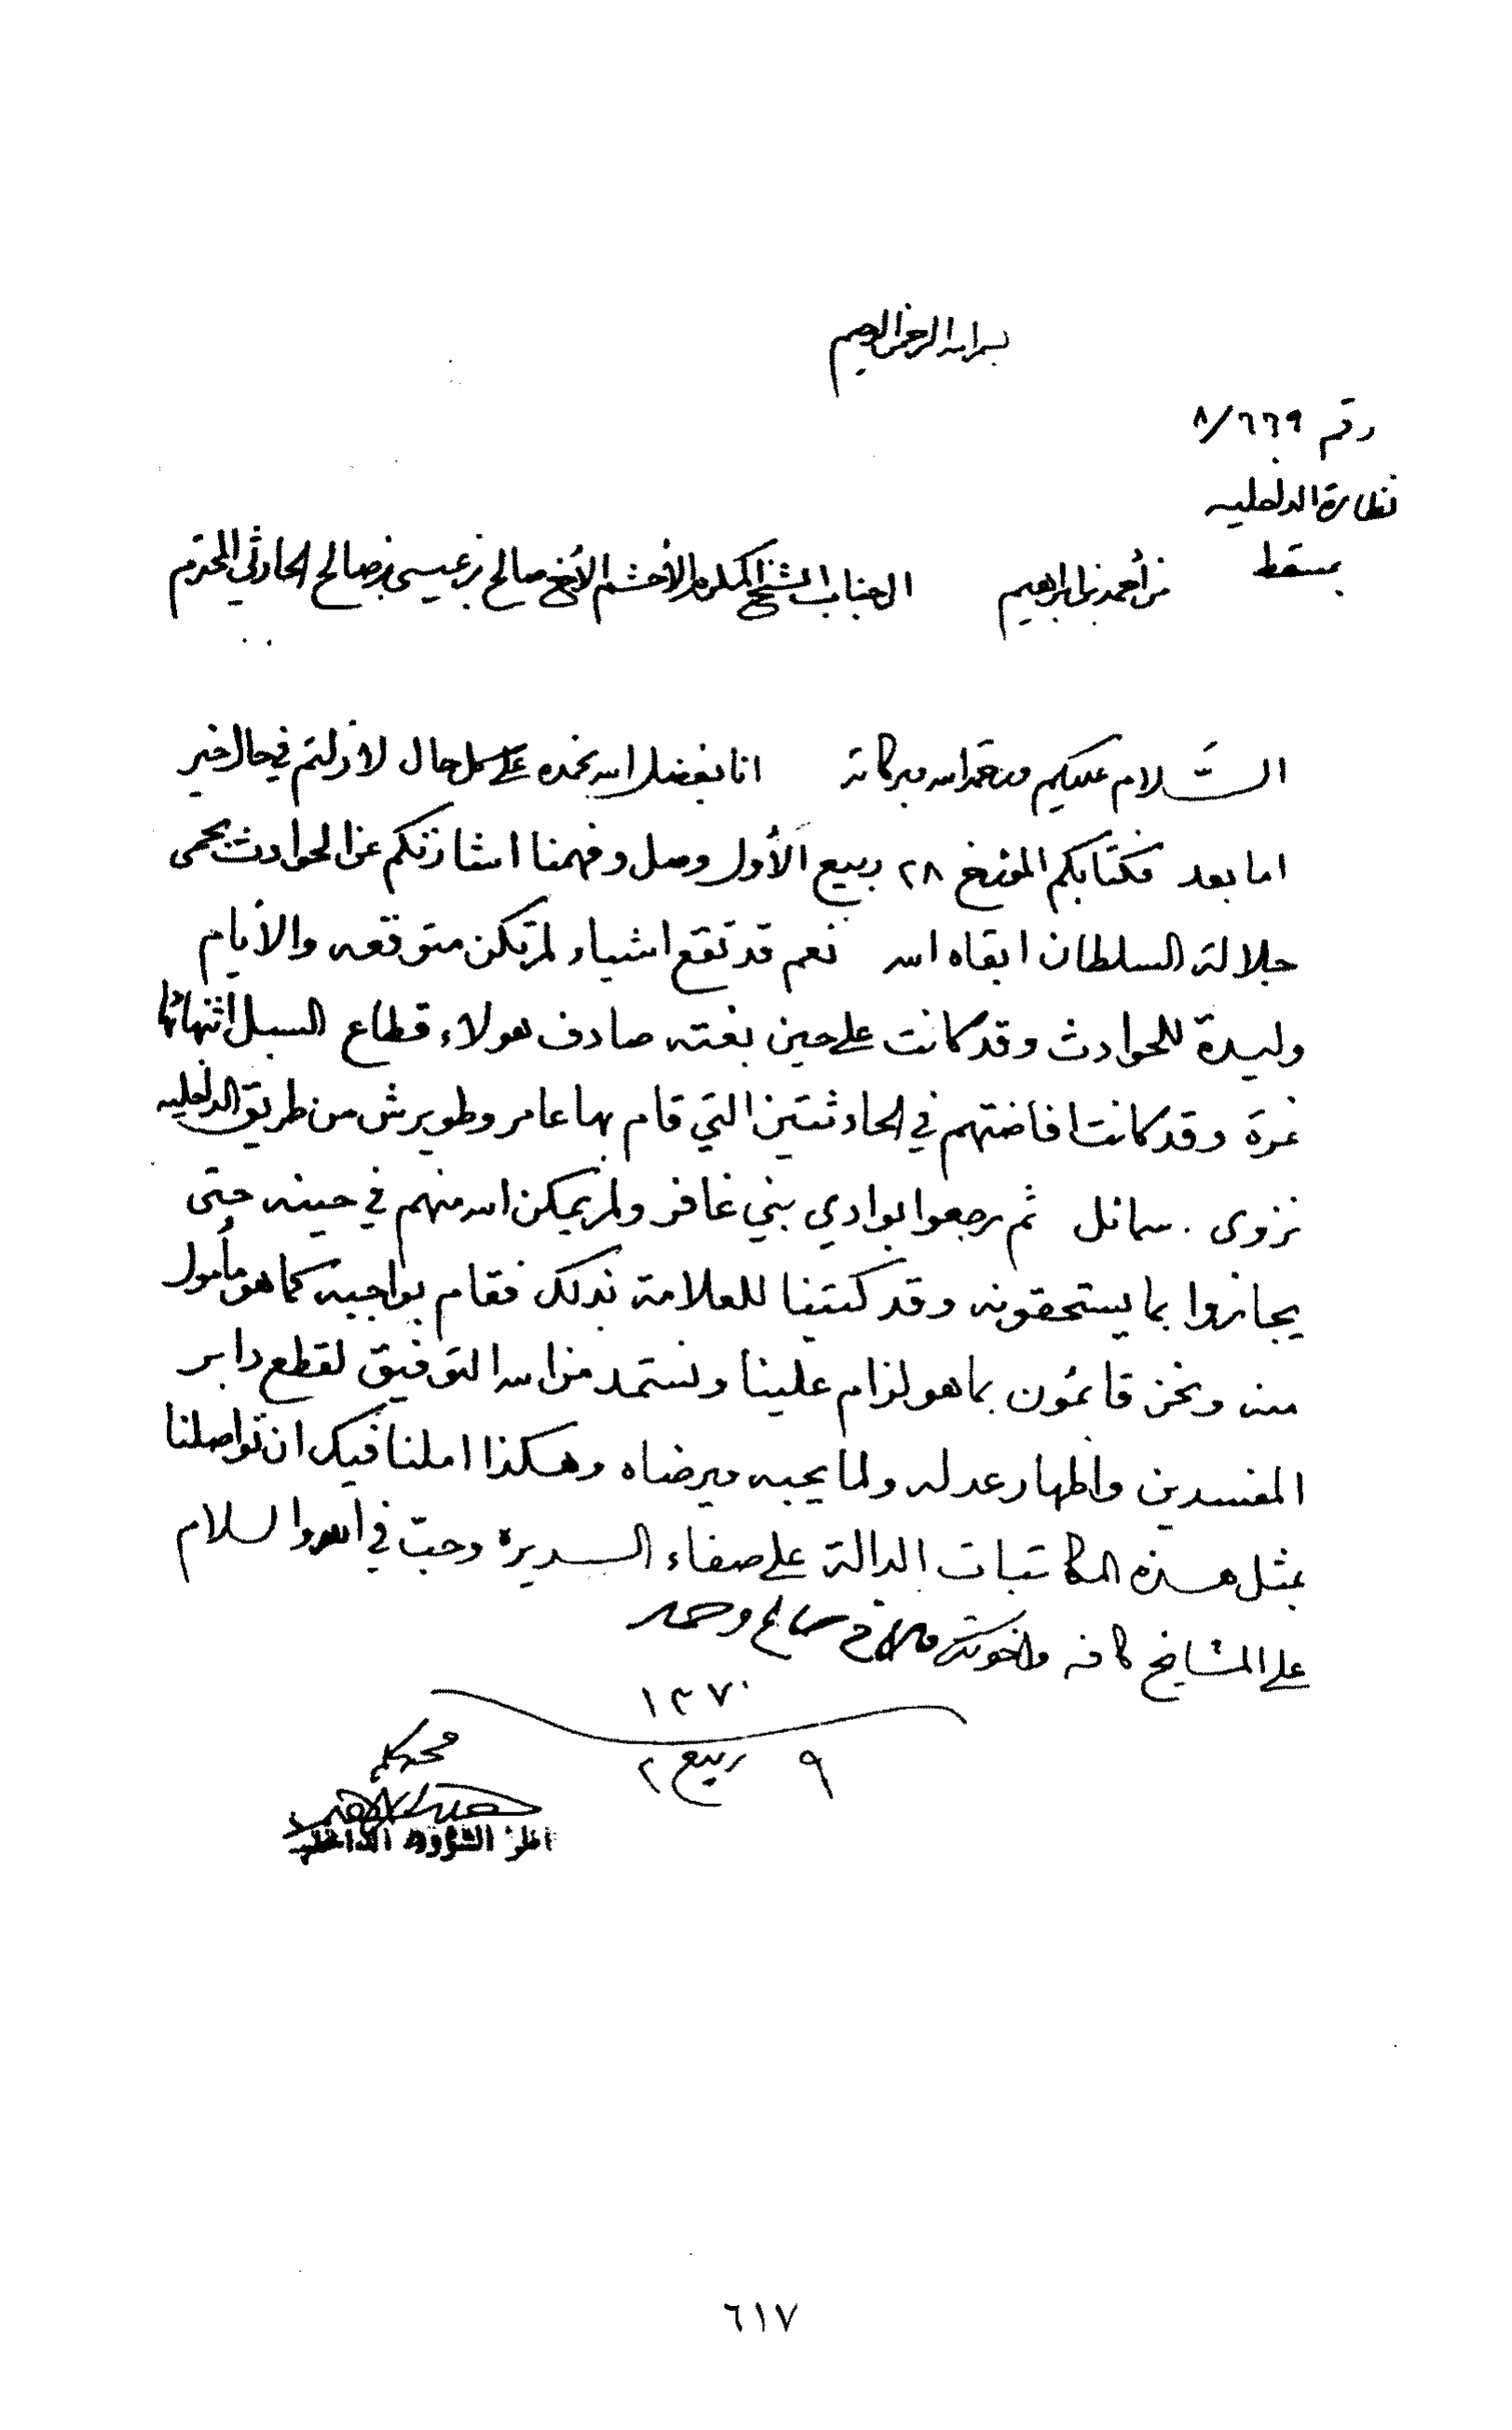 بسم الله الرحمن الرحيم
رقم ٨/٦٦٩
نظارة الداخليه
بمسقط
من أحمد بن ابراهيم الى جناب الشيخ المكرم الأحشم الأخ صالح بن عيسى بن صالح الحارثي المحترم
السَّلام عليكم ورحمة الله وبركاته انا بفضل الله نحمده على كل حال لا زلتم في حال خير
اما بعد فكتابكم المؤرخ ٢٨ ربيع الأول وصل وفهمنا اشارتكم عن الحوادث بحمى
جلالة السلطان ابقاه الله نعم قد تقع اشياء لم تكن متوقعه والأيام
وليدة للحوادث وقد كانت على حين بغته صادف هولاء قطاع السبل أثنهائها
غرة وقد كانت افاضتهم في الحادثتين التي قام بها عامر وطويرش من طريق الداخليه
نزوى . سمائل ثم رجعوا بوادي بني غافر ولم يمكن الله منهم في حينه حتى
يجازوا بما يستحقونه وقد كتبنا للعلامة بذلك فقام بواجبه كما هو مأمول
منه ونحن قائمون بما هو لزام علينا ونستمد من الله التوفيق لقطع دابر
المفسدين واظهار عدله ولما يحبه ويرضاه وهكذا املنا فيك ان تواصلنا
بمثل هذه المكاتبات الدالة على صفاء السريرة وحبت في الله والسلام
على المشايخ كافه واخوتك صالح وحمد
١٣٧٠
٩ ربيع ٢
محبكم
ناظر الشؤون الداخليه
٦١٧